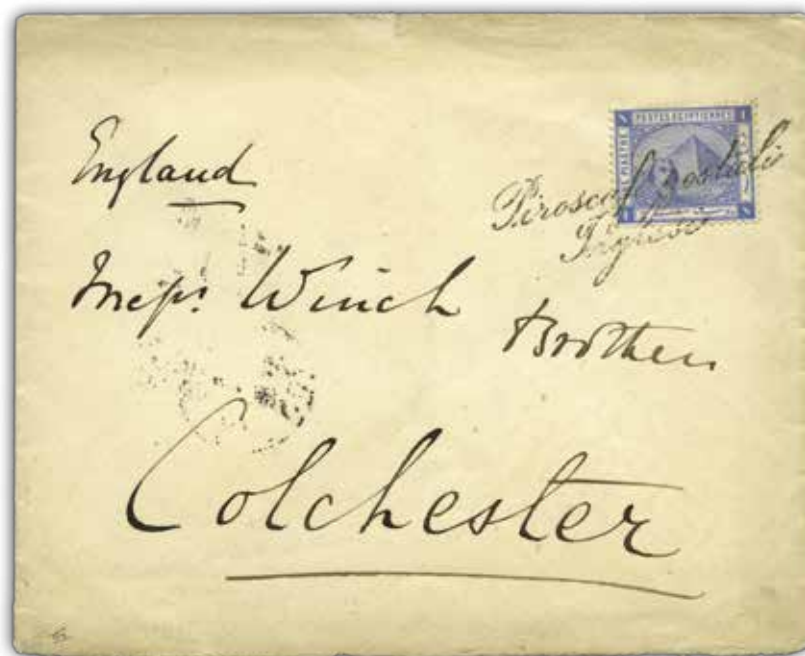 England
POSTES EGYPTIENNES
Piroscafi Postali
Inglesi
Messrs. Winch
Brothers
Colchester